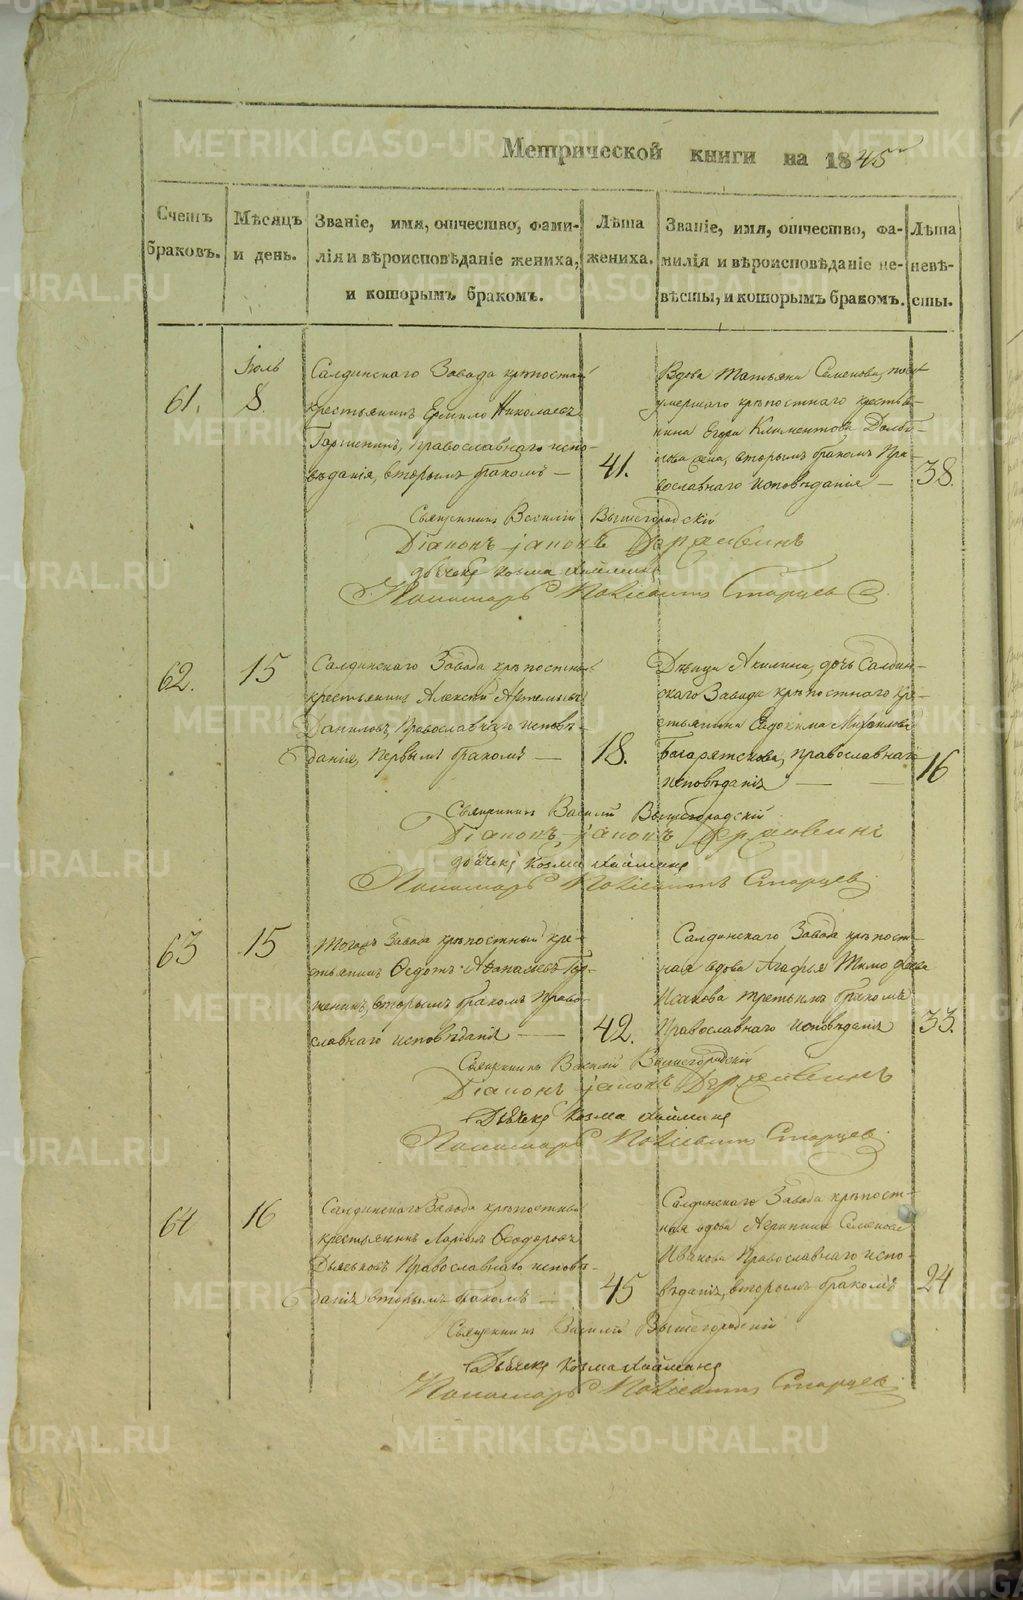 Метрической книги на 1845
Счетъ браковъ.
Мѣсяцъ и день.
Званіе, имя, отчество, фами-
лія и вѣроисповѣданіе жениха,
и которымъ бракомъ.
Лѣта
жениха.
Званіе, имя, отчество, фа-
милія и вѣроисповѣданіе не-
вѣсты, и которымъ бракомъ.
Лѣта
невѣ-
сты.
61.
Іюль
8.
Салдинскаго Завода крѣпостный
крестьянинъ Ермило Николаевъ
православнаго испо-
вѣданія, вторымъ бракомъ —
41.
Вдова Татьяна Семенова,
умершаго крѣпостнаго крестья-
нина Егора Климентова Долби-
лова жена, вторымъ бракомъ Пра-
вославнаго Исповѣданія —
38.
Священникъ Василій Вышегородскій
Діаконъ Іаковъ Державинъ
Дьячекъ Козма
Пономарь Старцевъ
62.
15
Салдинскаго Завода крѣпостный
крестьянинъ Алексѣй Артемьевъ
Даниловъ, Православнаго исповѣ-
данія, Первымъ бракомъ —
18.
Дѣвица Акилина, дочь Салдин-
скаго Завода крѣпостнаго кре-
стьянина Евдокима Михайлова
Богарятскова, православнаго
исповѣданія —
16
Священникъ Василій Вышегородскій
Діаконъ Іаковъ Державинъ
Дьячекъ Козма
Пономарь Старцевъ
63
15
Тогожъ Завода крѣпостный кре-
стьянинъ Ѳедотъ Аѳанасьевъ
вторымъ бракомъ Право-
славнаго исповѣданія —
42.
Салдинскаго Завода крѣпост-
ная вдова Агафья Тимофеева
Исакова третьимъ бракомъ
Православнаго Исповѣданія
33.
Священникъ Василій Вышегородскій
Діаконъ Іаковъ Державинъ
Дьячекъ Козма
Пономарь Старцевъ
64
16
Салдинскаго Завода крѣпостный
крестьянинъ Ѳеодоровъ
Дьячковъ Православнаго исповѣ-
данія вторымъ бракомъ —
45
Салдинскаго Завода крѣпост-
ная вдова Агрипина Семенова
Ивакова Православнаго испо-
вѣданія, вторымъ бракомъ
24
Священникъ Василій Вышегородскій
Дьячекъ Козма
Пономарь Старцевъ
METRIKI.GASO-URAL.RU